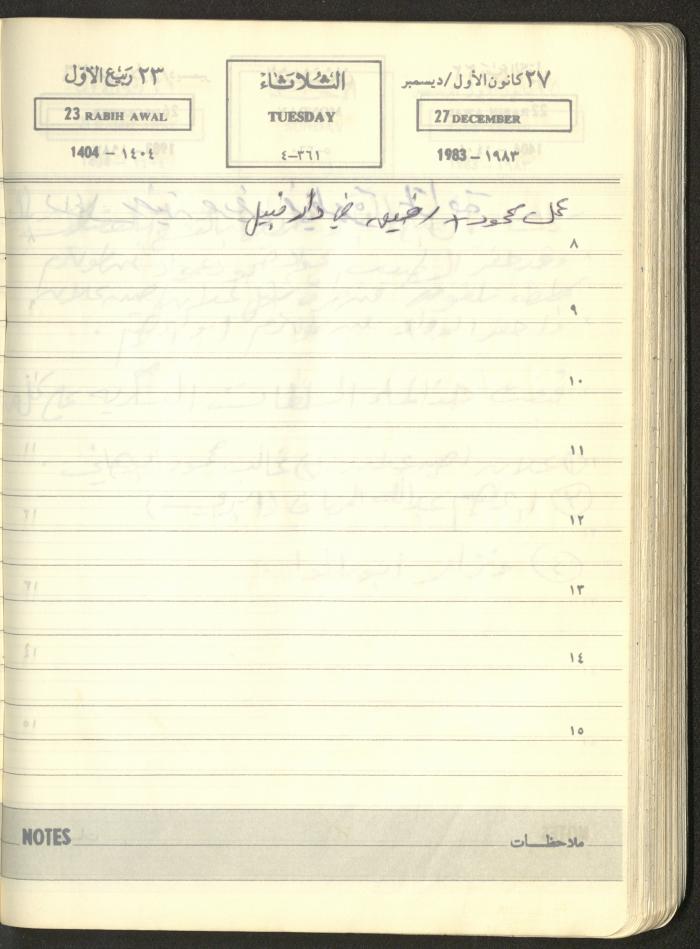 ٢٣ ربيع الأول
23 RABIH AWAL
1404 – ١٤٠٤
الثلاثاء
TUESDAY
٤-٣٦١
٢٧ كانون الأول/ديسمبر
27 DECEMBER
1983 – ١٩٨٣
عمل محمود + رفيق في دار نبيل
٨
٩
١٠
١١
١٢
١٣
١٤
١٥
NOTES
ملاحظات